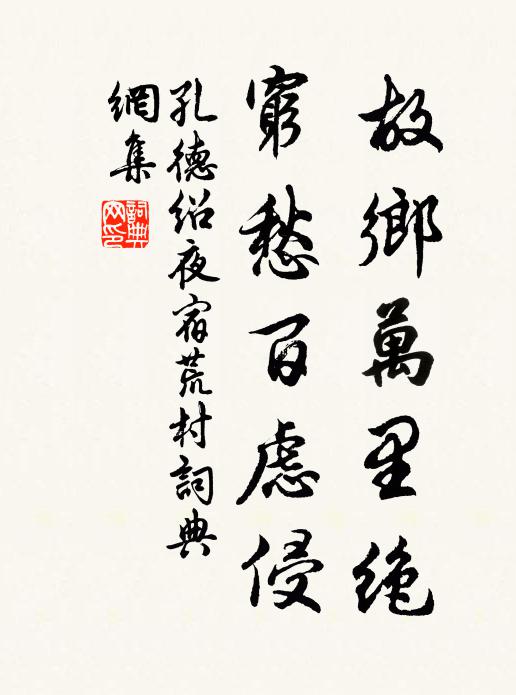 故鄉萬里絕
窮愁百慮侵
孔德紹夜宿荒村詞典
網集
詞典网印